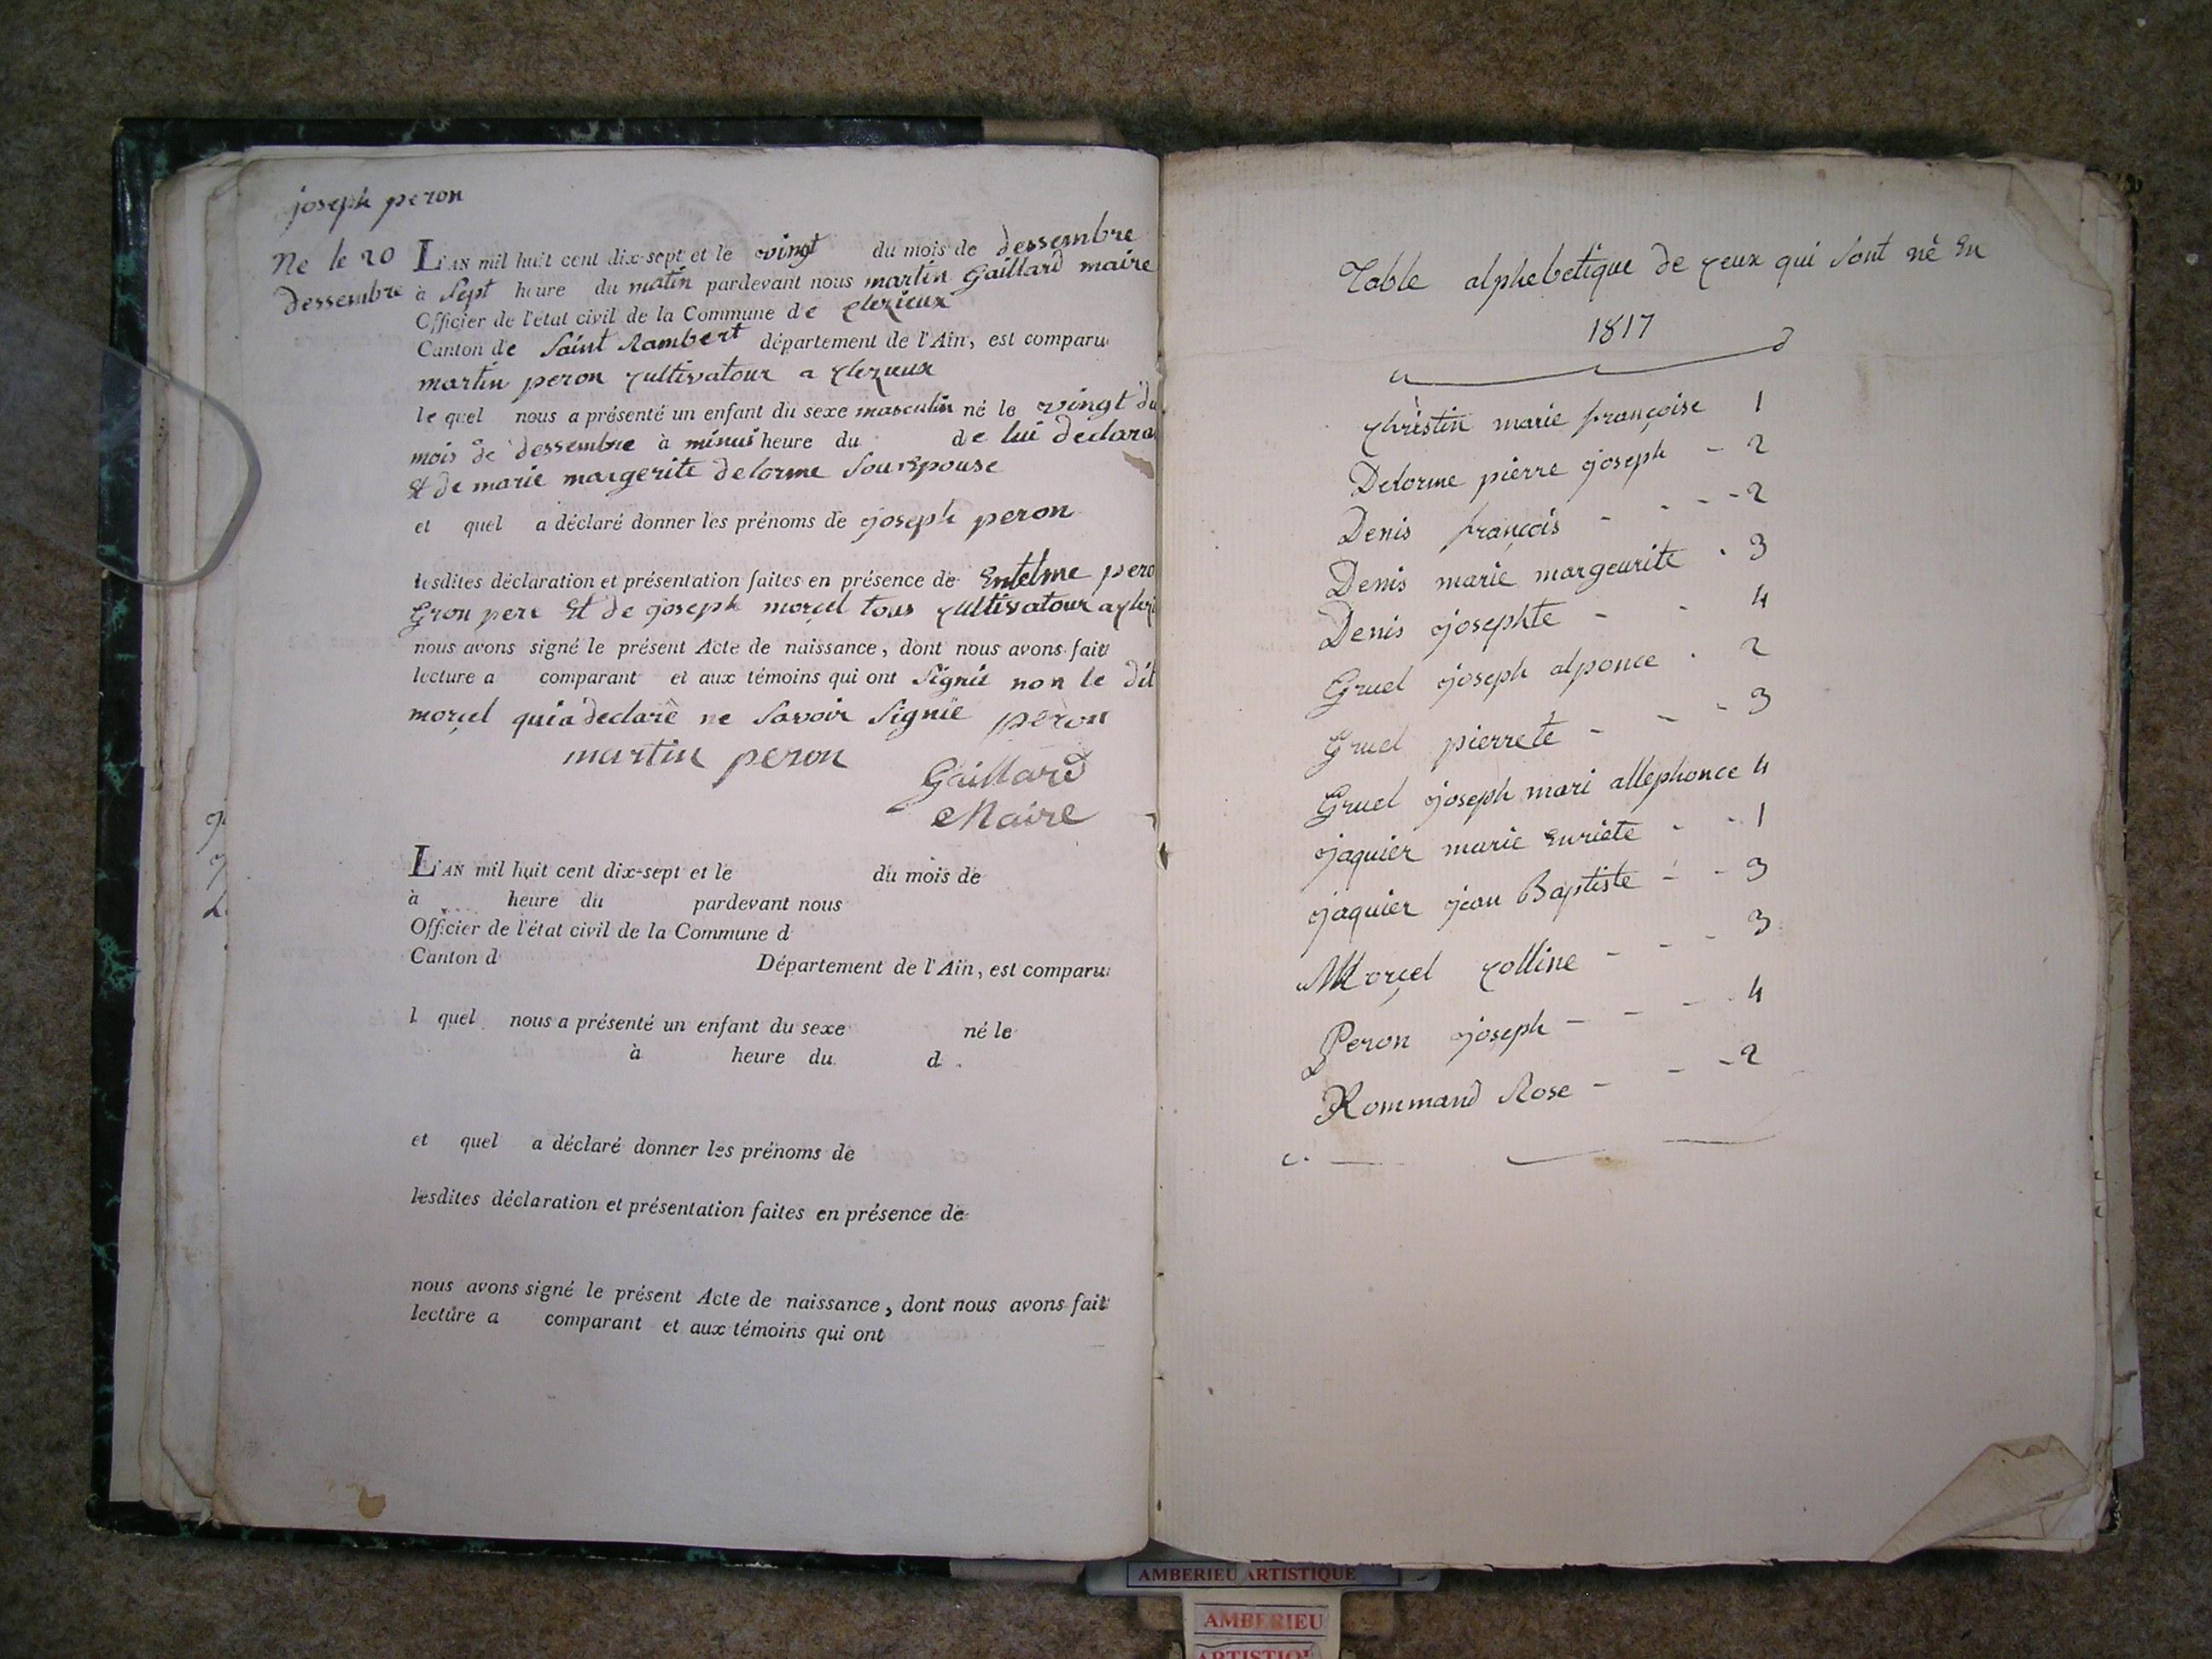 joseph peron
Ne le 20
dessembre
L'AN mil huit cent dix-sept et le vingt du mois de dessembre
à Sept heure du matin pardevant nous martin Gaillard maire
Officier de l'état civil de la Commune de Clezieux
Canton de Saint Rambert département de l'Ain, est comparu
martin peron cultivatour a Clezieux
le quel nous a présenté un enfant du sexe masculin né le vingt du
mois de dessembre à minui heure du de lui declara
Et de marie margerite delorme Son Epouse
et quel a déclaré donner les prénoms de joseph peron
lesdites déclaration et présentation faites en présence de Entelme pero
Gron pere Et de joseph morçel tous cultivatour a
nous avons signé le présent Acte de naissance, dont nous avons fait
lecture a comparant et aux témoins qui ont Signié non le dit
morçel qui a declaré ne Savoir Signié peron
martin peron
Gaillard
Maire
L'AN mil huit cent dix-sept et le du mois de
à heure du pardevant nous
Officier de l'état civil de la Commune d
Canton d Département de l'Ain, est comparu
l quel nous a présenté un enfant du sexe né le
à heure du d
et quel a déclaré donner les prénoms de
lesdites déclaration et présentation faites en présence de
nous avons signé le présent Acte de naissance, dont nous avons fait
lecture a comparant et aux témoins qui ont
Table alphebetique de ceux qui Sont né En
1817
christin marie françoise 1
Delorme pierre joseph - 2
Denis françois - - - - 2
Denis marie margeurite - 3
Denis josephte - - 4
Gruel joseph alponce - 2
Gruel pierrete - - - 3
Gruel joseph mari allephonce 4
jaquier marie Enriete - - 1
jaquier jean Baptiste - - 3
Morçel colline - - - 3
Peron joseph - - - 4
Rommand Rose - - - 2
AMBERIEU ARTISTIQUE
AMBERIEU
ARTISTIQUE